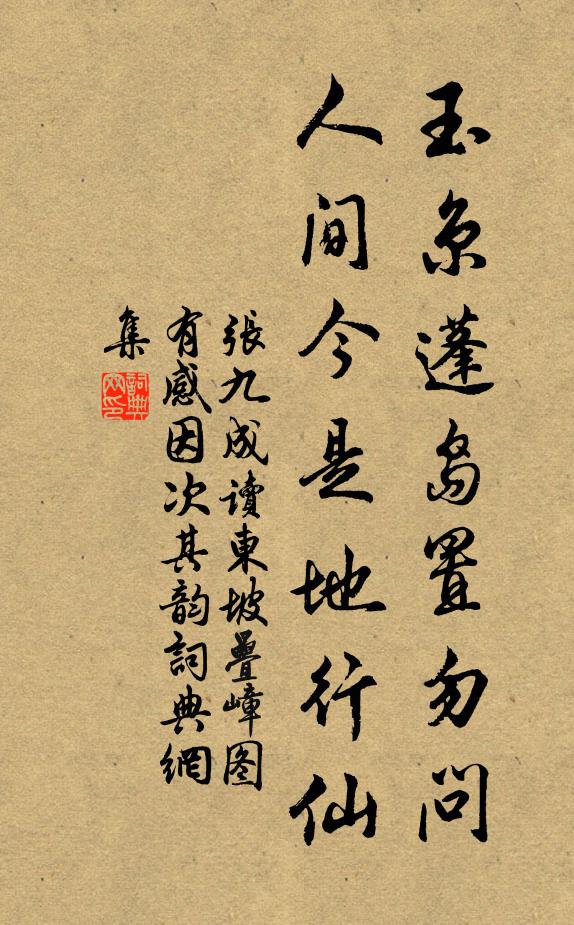 玉京蓬島置勿問
人間今是地行仙
張九成讀東坡疊嶂图
有感因次其韵詞典網
集
詞典網印